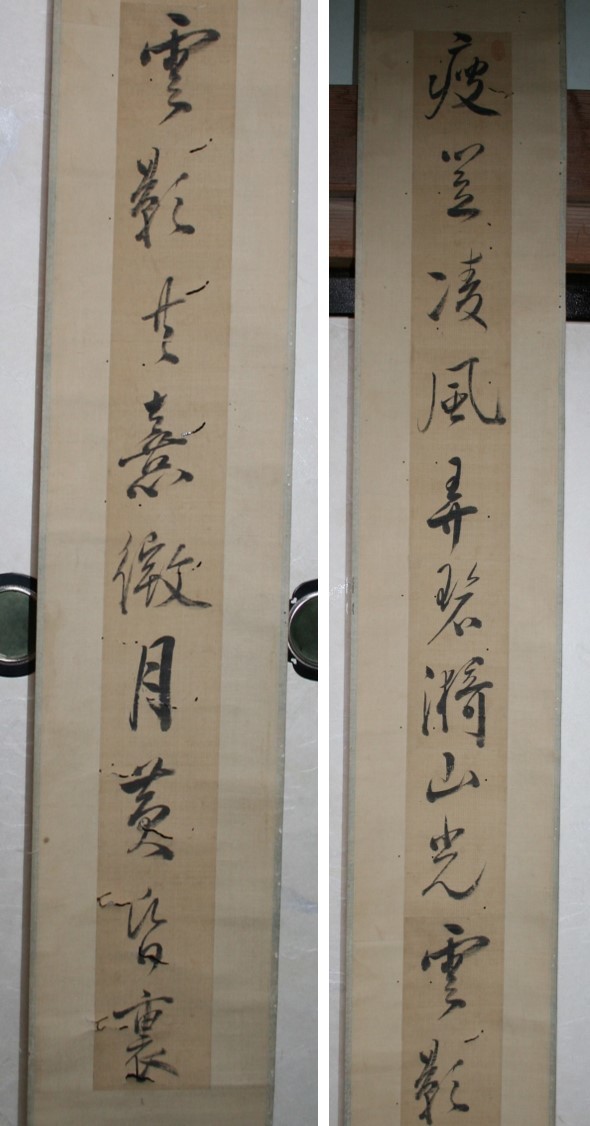 瘦竺凌風弄碧漪山光雲影
雲影共熹微月黄昏裏